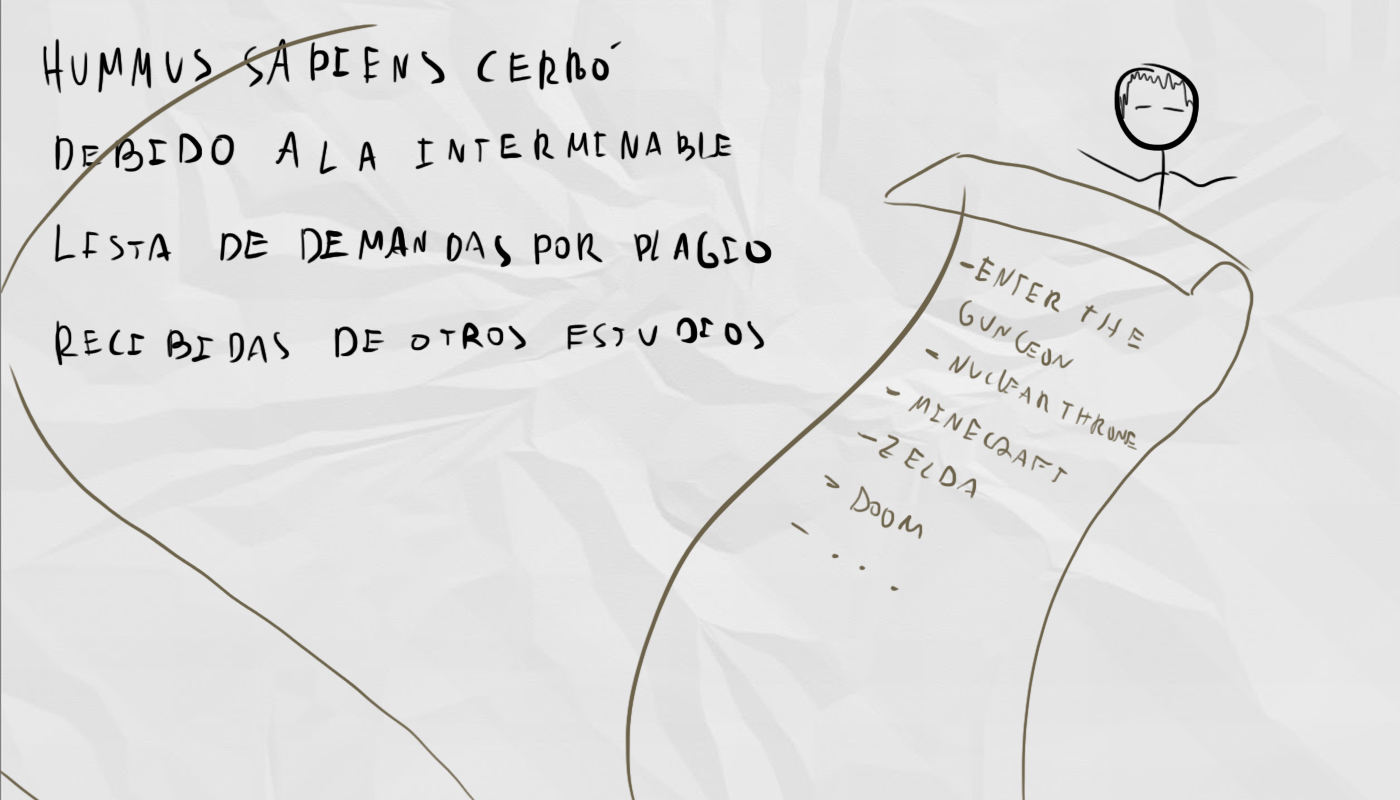 HUMMUS SAPIENS CERRÓ
DEBIDO A LA INTERMINABLE
LISTA DE DEMANDAS POR PLAGIO
RECIBIDAS DE OTROS ESTUDIOS
-ENTER THE
GUNGEON
- NUCLEAR THRONE
- MINECRAFT
-ZELDA
- DOOM
- ...